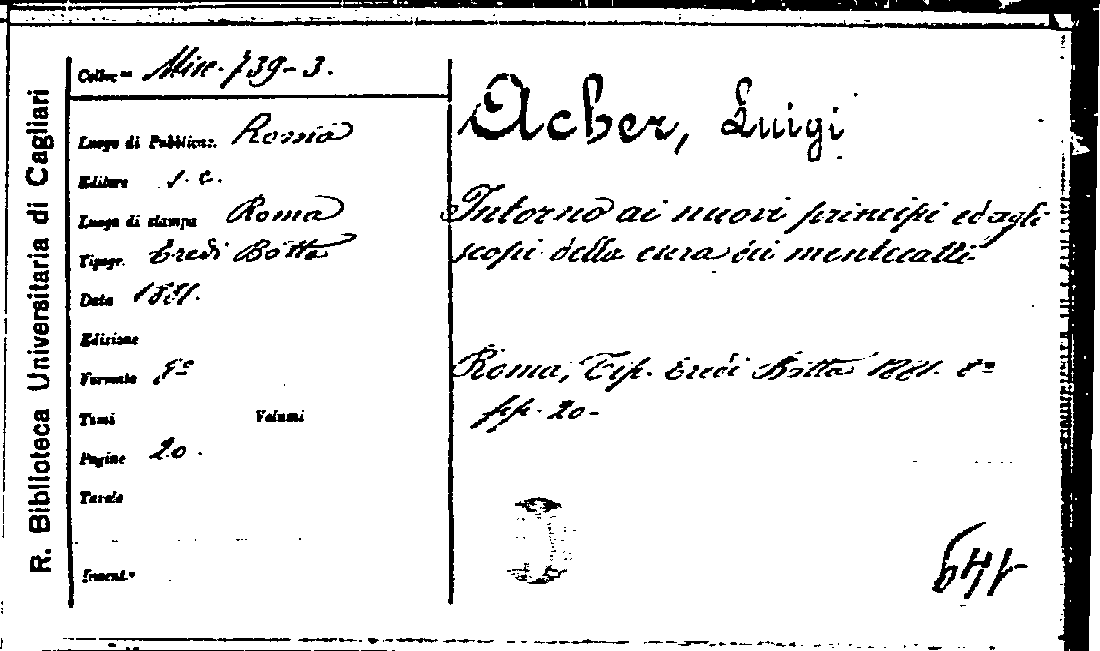 R. Biblioteca Universitaria di Cagliari
Colloc.ne Misc. 739-3.
Luogo di Pubblicaz. Roma
Editore s. e.
Luogo di stampa Roma
Tipogr. Eredi Botta
Data 1881.
Edizione
Formato 8º
Tomi Volumi
Pagine 20.
Tavole
Invent.º
Acher, Luigi
Intorno ai nuovi principi ed agli
scopi della cura dei mentecatti.
Roma, Tip. Eredi Botta 1881. 8º
pp. 20-